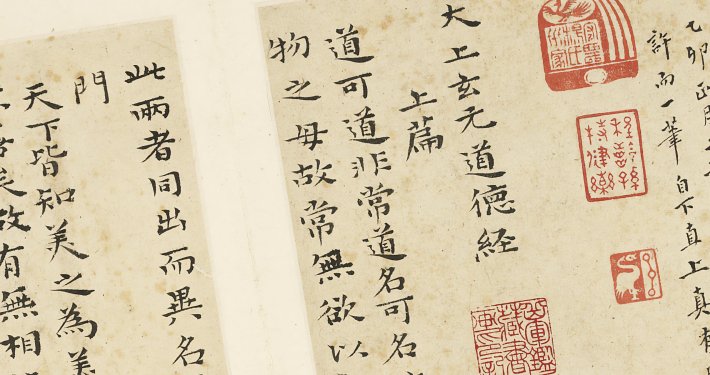 乙卯正
許而一筆自下直上真有
大上玄元道德經
上篇
道可道非常道名可名
物之母故常無欲以
此兩者同出而異名
門
天下皆知美之為美
矣故有無相